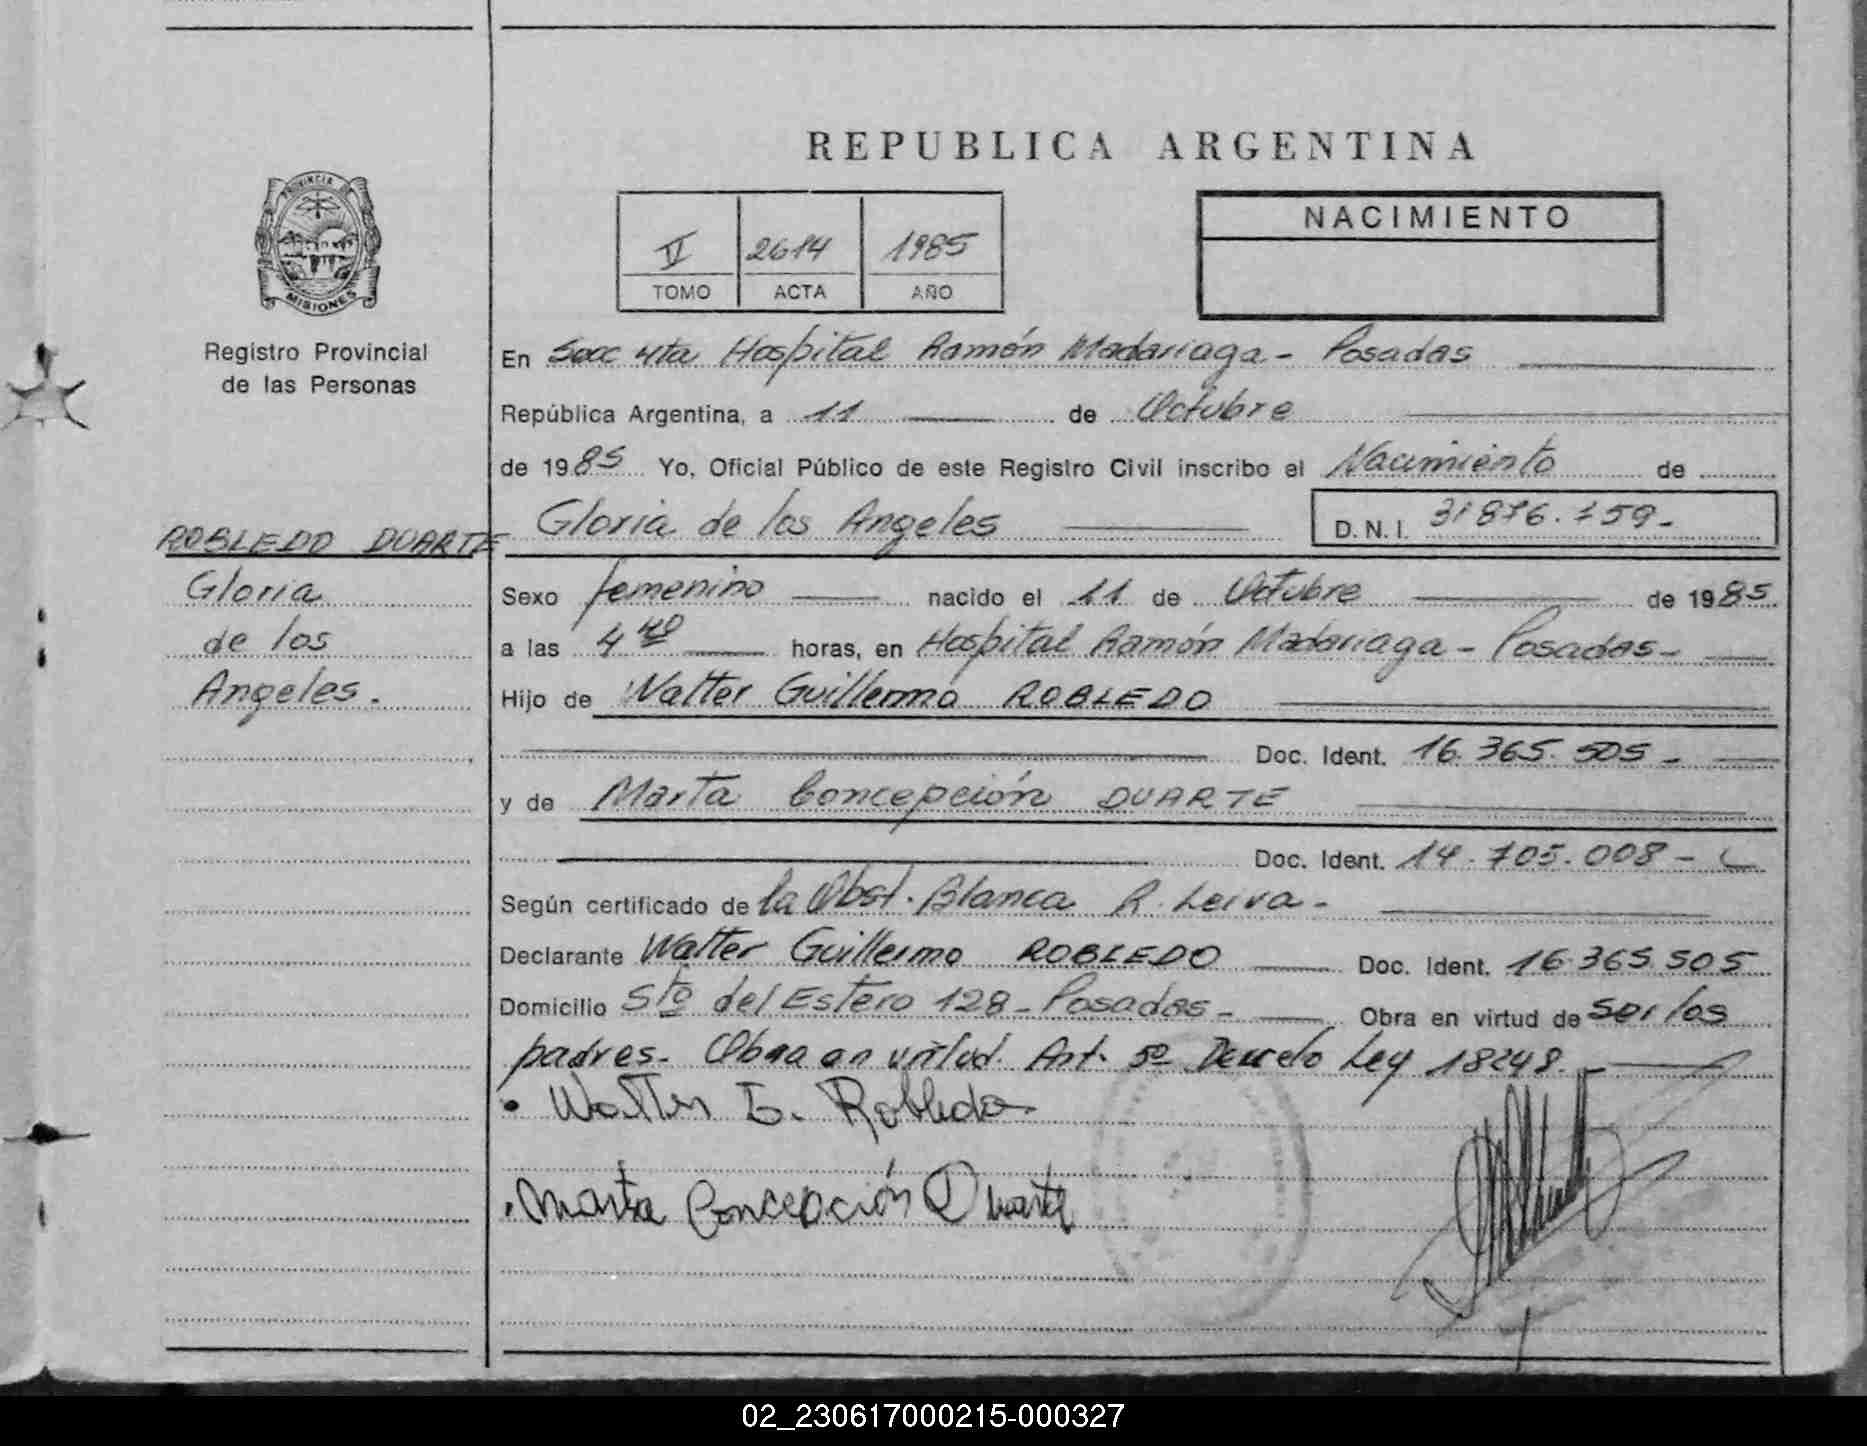 REPUBLICA ARGENTINA
PROVINCIA DE
MISIONES
Registro Provincial
de las Personas
2614 1985
TOMO ACTA AÑO
NACIMIENTO
En Secc 4ta Hospital Ramón Madariaga - Posadas
República Argentina, a 11 de Octubre
de 1985 Yo, Oficial Público de este Registro Civil inscribo el Nacimiento de
Gloria de los Angeles D.N.I. 31876.159.-
ROBLEDO DUARTE
Gloria
de los
Angeles.
Sexo femenino nacido el 11 de Octubre de 1985
a las 4 40 horas, en Hospital Ramón Madariaga - Posadas -
Hijo de Walter Guillermo ROBLEDO
Doc. Ident. 16.365.505 -
y de Marta Concepción DUARTE
Doc. Ident. 14.705.008 -
Según certificado de la Obst. Blanca R. Leiva -
Declarante Walter Guillermo ROBLEDO Doc. Ident. 16.365.505
Domicilio Sto del Estero 128 - Posadas - Obra en virtud de ser los
padres. Obra en virtud. Art. 5º Decreto Ley 18248.
Walter G. Robledo
Marta Concepción Duarte
02_230617000215-000327